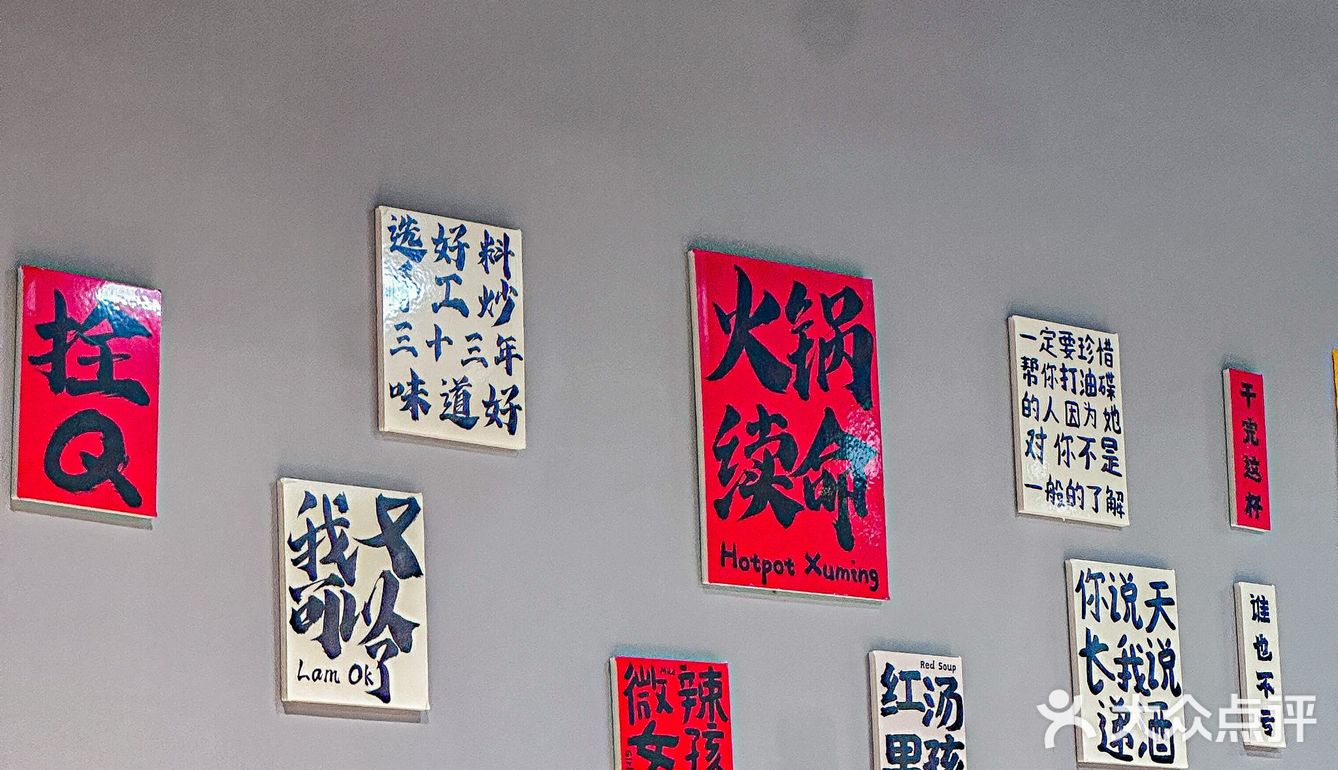 拴
Q
选好料
了工炒
三十三年
味道好
我又
可以了
Lam Ok
火锅
续命
Hotpot Xuming
一定要珍惜
帮你打油碟
的人因为她
对你不是
一般的了解
干完这杯
微辣
女孩
Red Soup
红汤
男孩
你说天
长我说
递酒
谁也不亏
大众点评